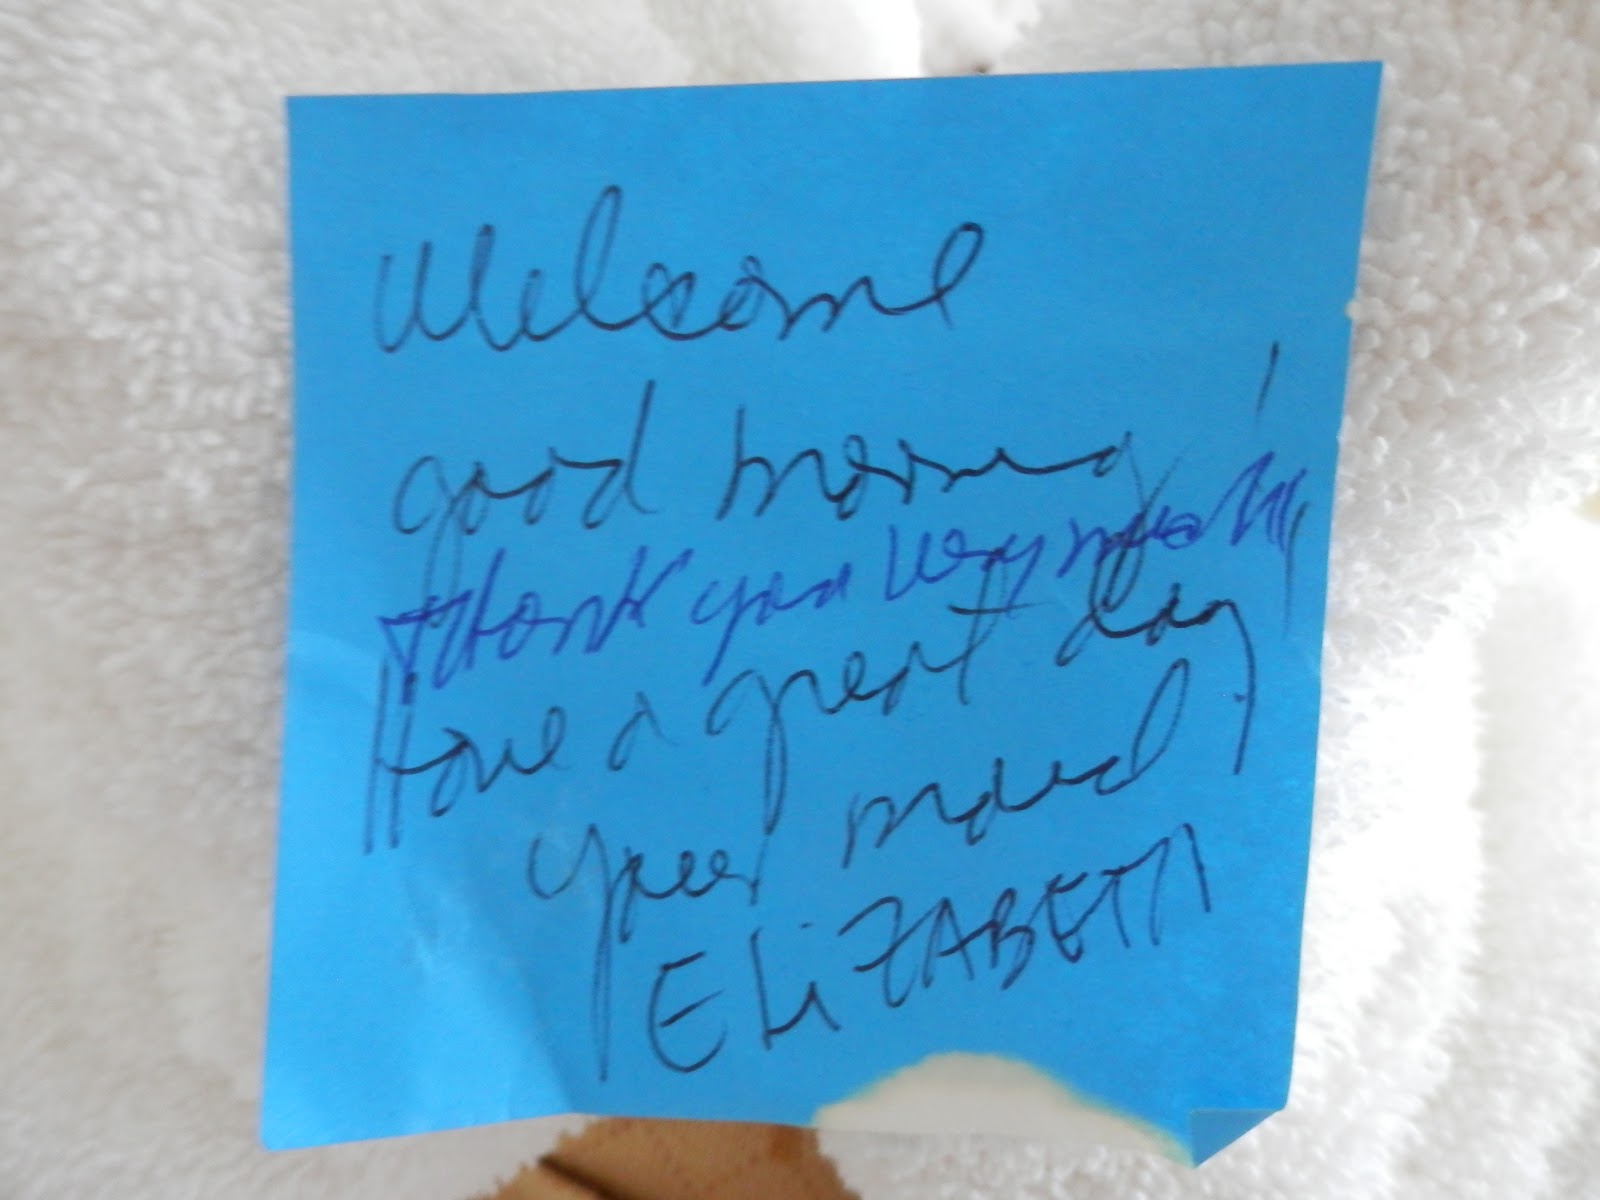 Welcome
good morning!
Thank you very much!!!
Have a great day!
your maid
ELiZABETH